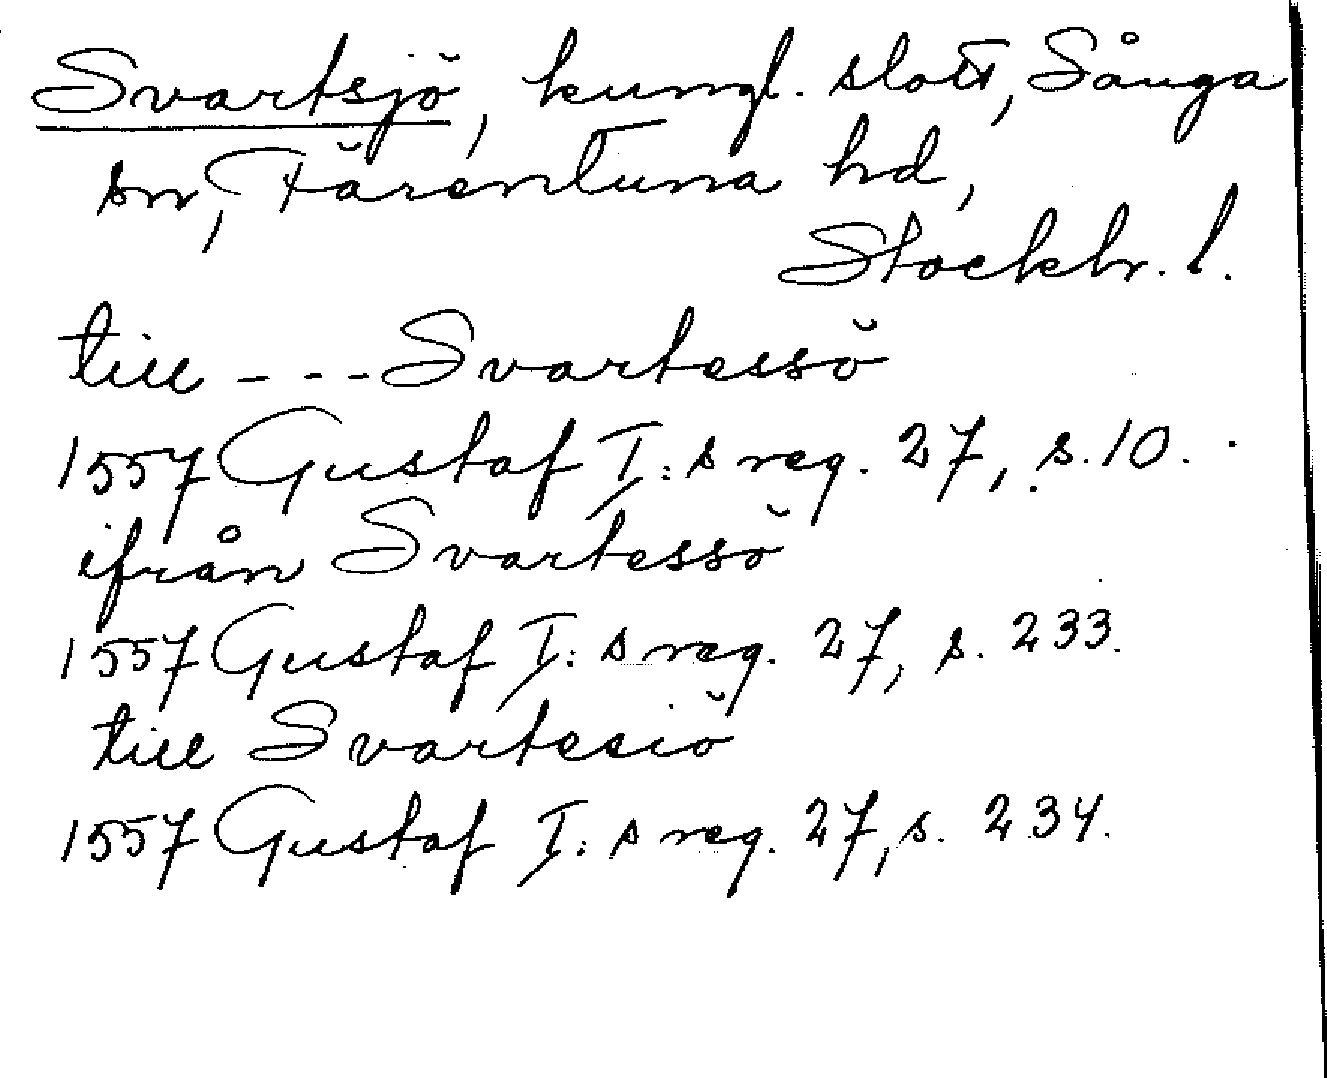 Svartsjö, kungl. slott, Sånga
sn, Färentuna hd,
Stockh. l.
till - - - Svartessö
1557 Gustaf I:s reg. 27, s. 10.
ifrån Svartessö
1557 Gustaf I:s reg. 27, s. 233.
till Svartesiö
1557 Gustaf I:s reg. 27, s. 234.